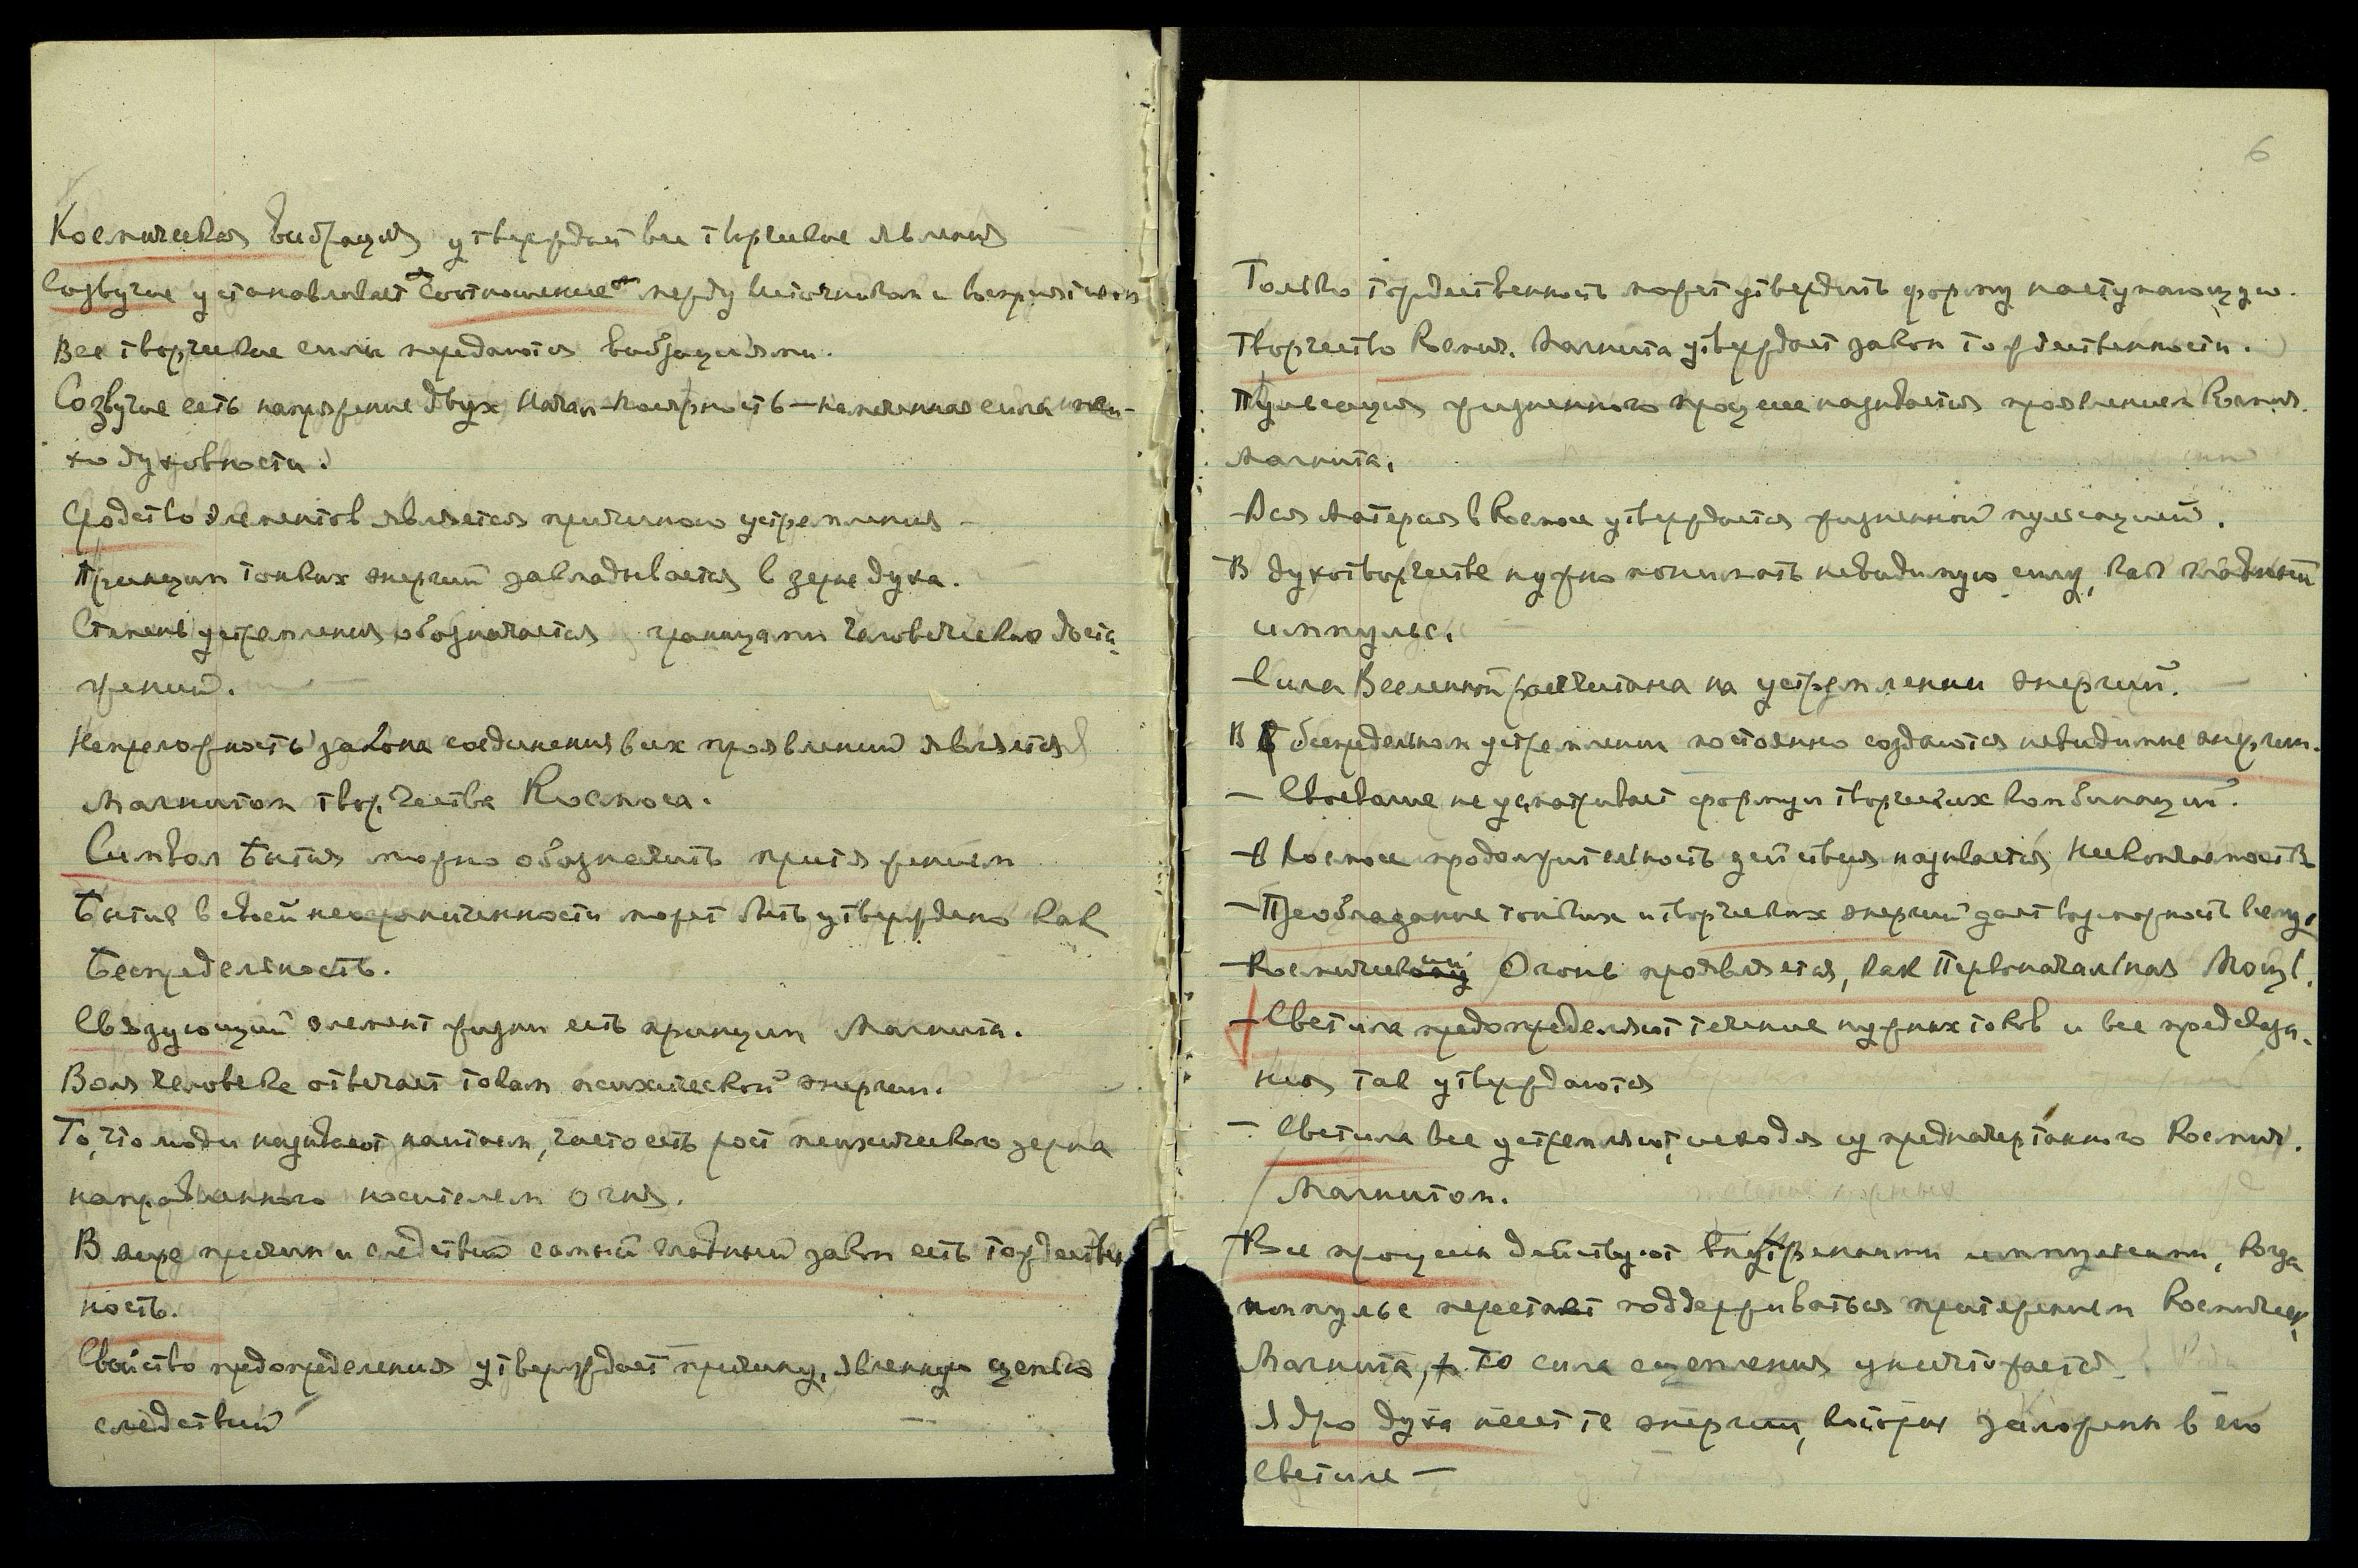 Космическая вибрация утверждает все творческие явления
Созвучие установливает соотношение между источником и восприятием
Все творческие силы передаются вибрациями.
Созвучие есть напряжение двух Начал полярность – несменная сила пси-
хо духовности.
Сродство элементов является причиною устремления –
Принцип тонких энергий закладывается в зерне духа.
Степень устремления обозначается границами человеческих дости
жений.
Непреложность закона соединения всех проявлений является
Магнитом творчества Космоса.
Символ Бытия можно обозначить притяжением
Бытие в своей неограниченности может быть утверждено как
Беспредельность.
Связующий элемент жизни есть принцип Магнита.
Воля человека отвечает токам психической энергии.
То, что люди называют наитием, часто есть рост психического зерна
направленного носителем огня.
В мире причин и следствий самый главный закон есть тождествен
ность.
Свойство предопределения утверждает причину, явленную цепью
следствий –
6
Только тождественность может утвердить форму наступающую.
Творчество Космич. Магнита утверждает закон тождественности.
Пульсация жизненного процесса называется проявлением Космич.
Магнита.
Вся Материя в Космосе утверждается жизненной пульсацией.
В духотворчестве нужно понимать невидимую силу, как главный
импульс.
– Сила Вселенной рассчитана на устремлении энергий. –
В беспредельном устремлении постоянно создаются невидимые энергии.
– Своеволие не усматривает формул творческих комбинаций.
– В Космосе продолжительность действия называется Нескончаемость
– Преобладание тонких и творческих энергий дает возможность всему.
– Космический Огонь проявляется, как Первоначальная Мощь.
– Светила предопределяют течение нужных токов и все предсказа.
ния так утверждаются
– Светила все устремляют, исходя из предначертанного Космич.
Магнитом.
– Все процессы действуют внутренними импульсами, когда
импульс перестает поддерживаться притяжением Космическ.
Магнита, то сила сцепления уничтожается
Ядро духа несет те энергии, которые заложены в его
Светиле –